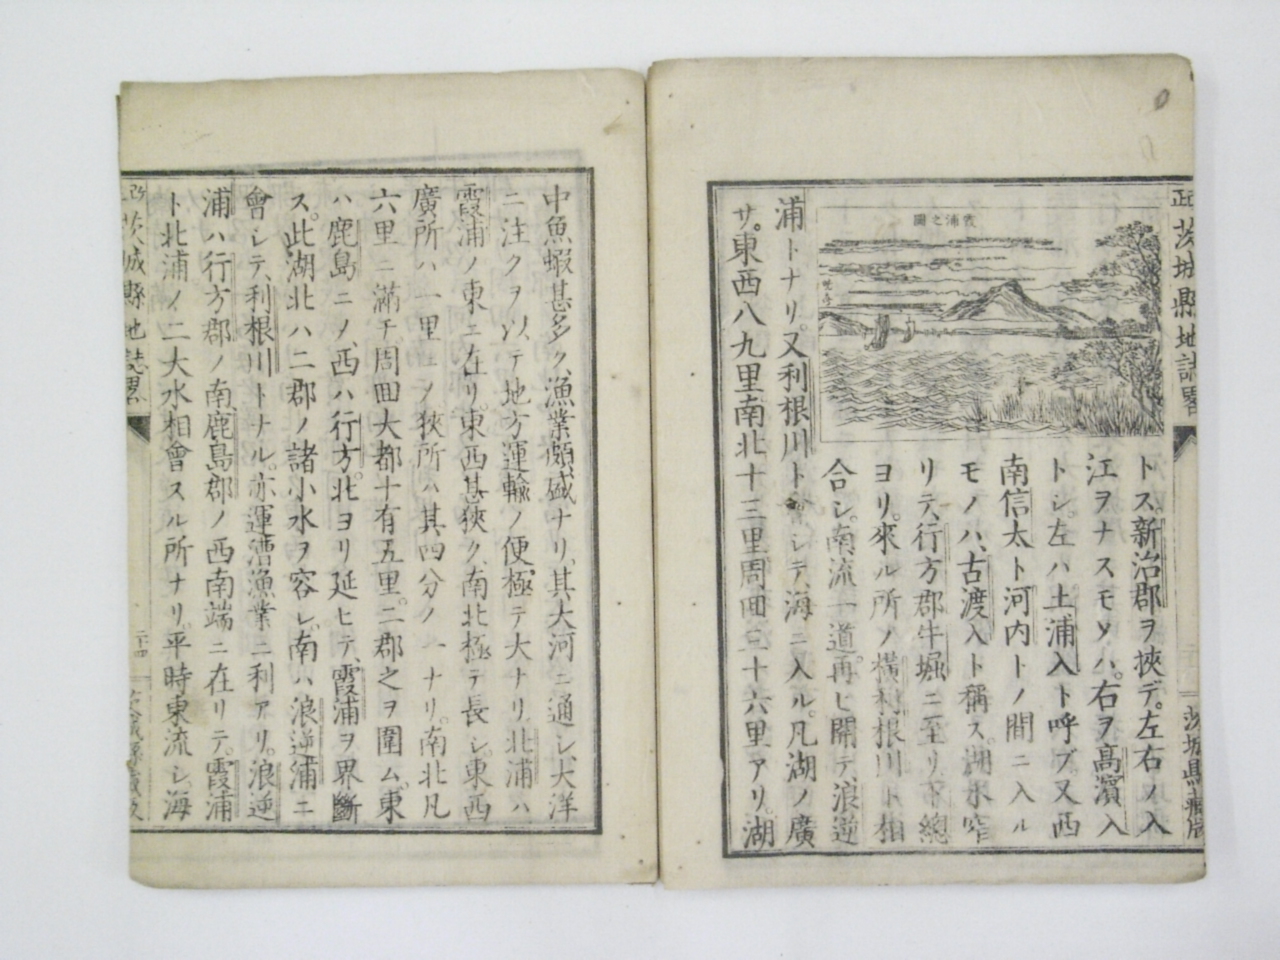 改正茨城縣地誌畧
茨城縣藏版
霞浦之圖
トス新治郡ヲ挾デ。左右ノ入
江ヲナスモノハ。右ヲ高濱入
トシ。左ハ土浦入ト呼ブ又西
南信太ト河内トノ間ニ入ル
モノハ、古渡入ト稱ス。湖水窄
リテ、行方郡牛堀ニ至リ。下總
ヨリ。來ル所ノ橫利根川ト相
合シ。南流一道。再ヒ開テ、浪逆
浦トナリ。又利根川ト會シテ、海ニ入ル。凡湖ノ廣
サ。東西八九里南北十三里周囬三十六里アリ。湖
中魚蝦甚多ク、漁業頗盛ナリ。其大河ニ通シ、大洋
ニ注クヲ以テ地方運輸ノ便、極テ大ナリ。北浦ハ
霞浦ノ東ニ在リ。東西甚狹ク、南北極テ長シ。東西
廣所ハ一里ニノ狹所ハ其四分ノ一ナリ。南北凡
六里ニ滿チ、周囬大都十有五里。二郡之ヲ圍ム。東
ハ鹿島ニノ、西ハ行方。北ヨリ延ヒテ、霞浦ヲ界斷
ス。此湖北ハ二郡ノ諸小水ヲ容レ、南ハ浪逆浦ニ
會シテ、利根川トナル。亦運漕漁業ニ利アリ。浪逆
浦ハ行方郡ノ南、鹿島郡ノ西南端ニ在リテ。霞浦
ト北浦ノ二大水相會スル所ナリ。平時東流シ、海
改正茨城縣地誌畧
二十四
茨城縣藏版